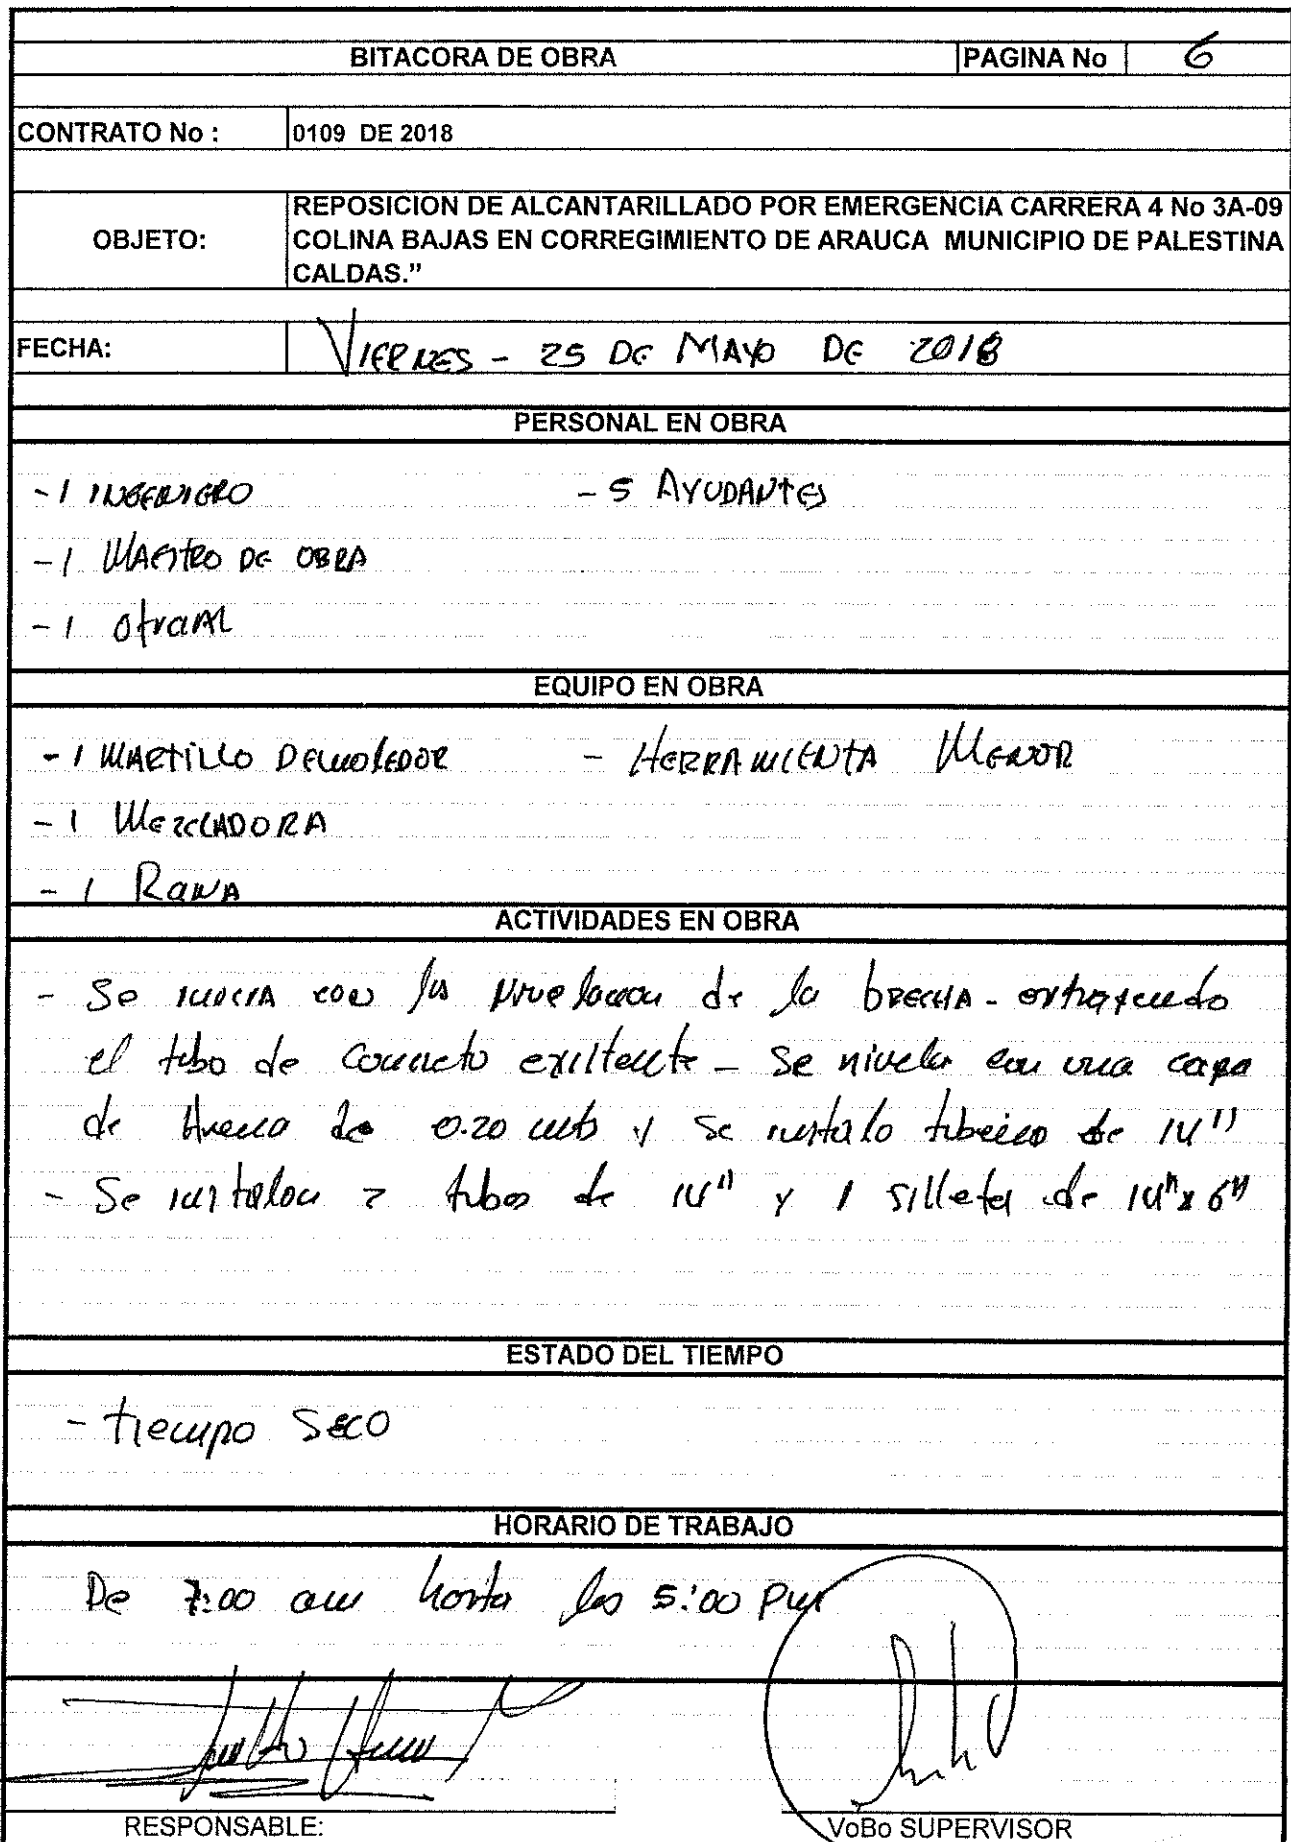 BITACORA DE OBRA PAGINA No 6
CONTRATO No : 0109 DE 2018
OBJETO: REPOSICION DE ALCANTARILLADO POR EMERGENCIA CARRERA 4 No 3A-09
COLINA BAJAS EN CORREGIMIENTO DE ARAUCA MUNICIPIO DE PALESTINA
CALDAS."
FECHA: VIERNES - 25 DE MAYO DE 2018
PERSONAL EN OBRA
- 1 INGENIERO - 5 AYUDANTES
- 1 MAESTRO DE OBRA
- 1 Oficial
EQUIPO EN OBRA
- 1 MARTILLO DEMOLEDOR - HERRAMIENTA MENOR
- 1 MEZCLADORA
- 1 RANA
ACTIVIDADES EN OBRA
- Se inicia con la nivelacion de la BRECHA - extrayendo
el tubo de concreto existente - Se nivela con una capa
de Arena de 0.20 mts y se instalo tuberia de 14"
- Se instalan 2 tubos de 14" y 1 silleta de 14" x 6"
ESTADO DEL TIEMPO
- tiempo Seco
HORARIO DE TRABAJO
De 7:00 am hasta las 5:00 Pm
RESPONSABLE: VoBo SUPERVISOR